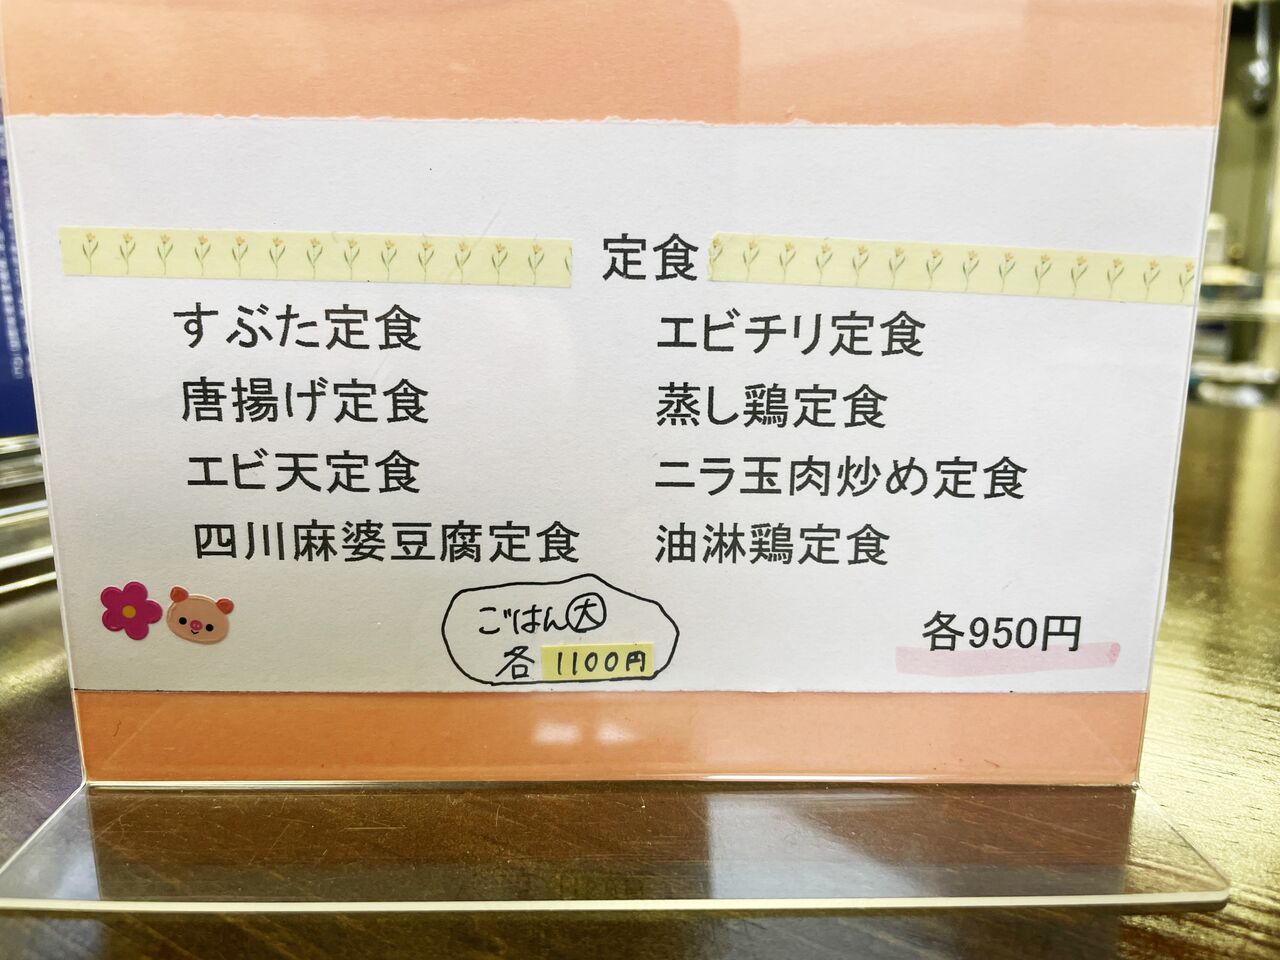 定食
すぶた定食
唐揚げ定食
エビ天定食
四川麻婆豆腐定食
エビチリ定食
蒸し鶏定食
ニラ玉肉炒め定食
油淋鶏定食
ごはん大
各 1100円
各950円